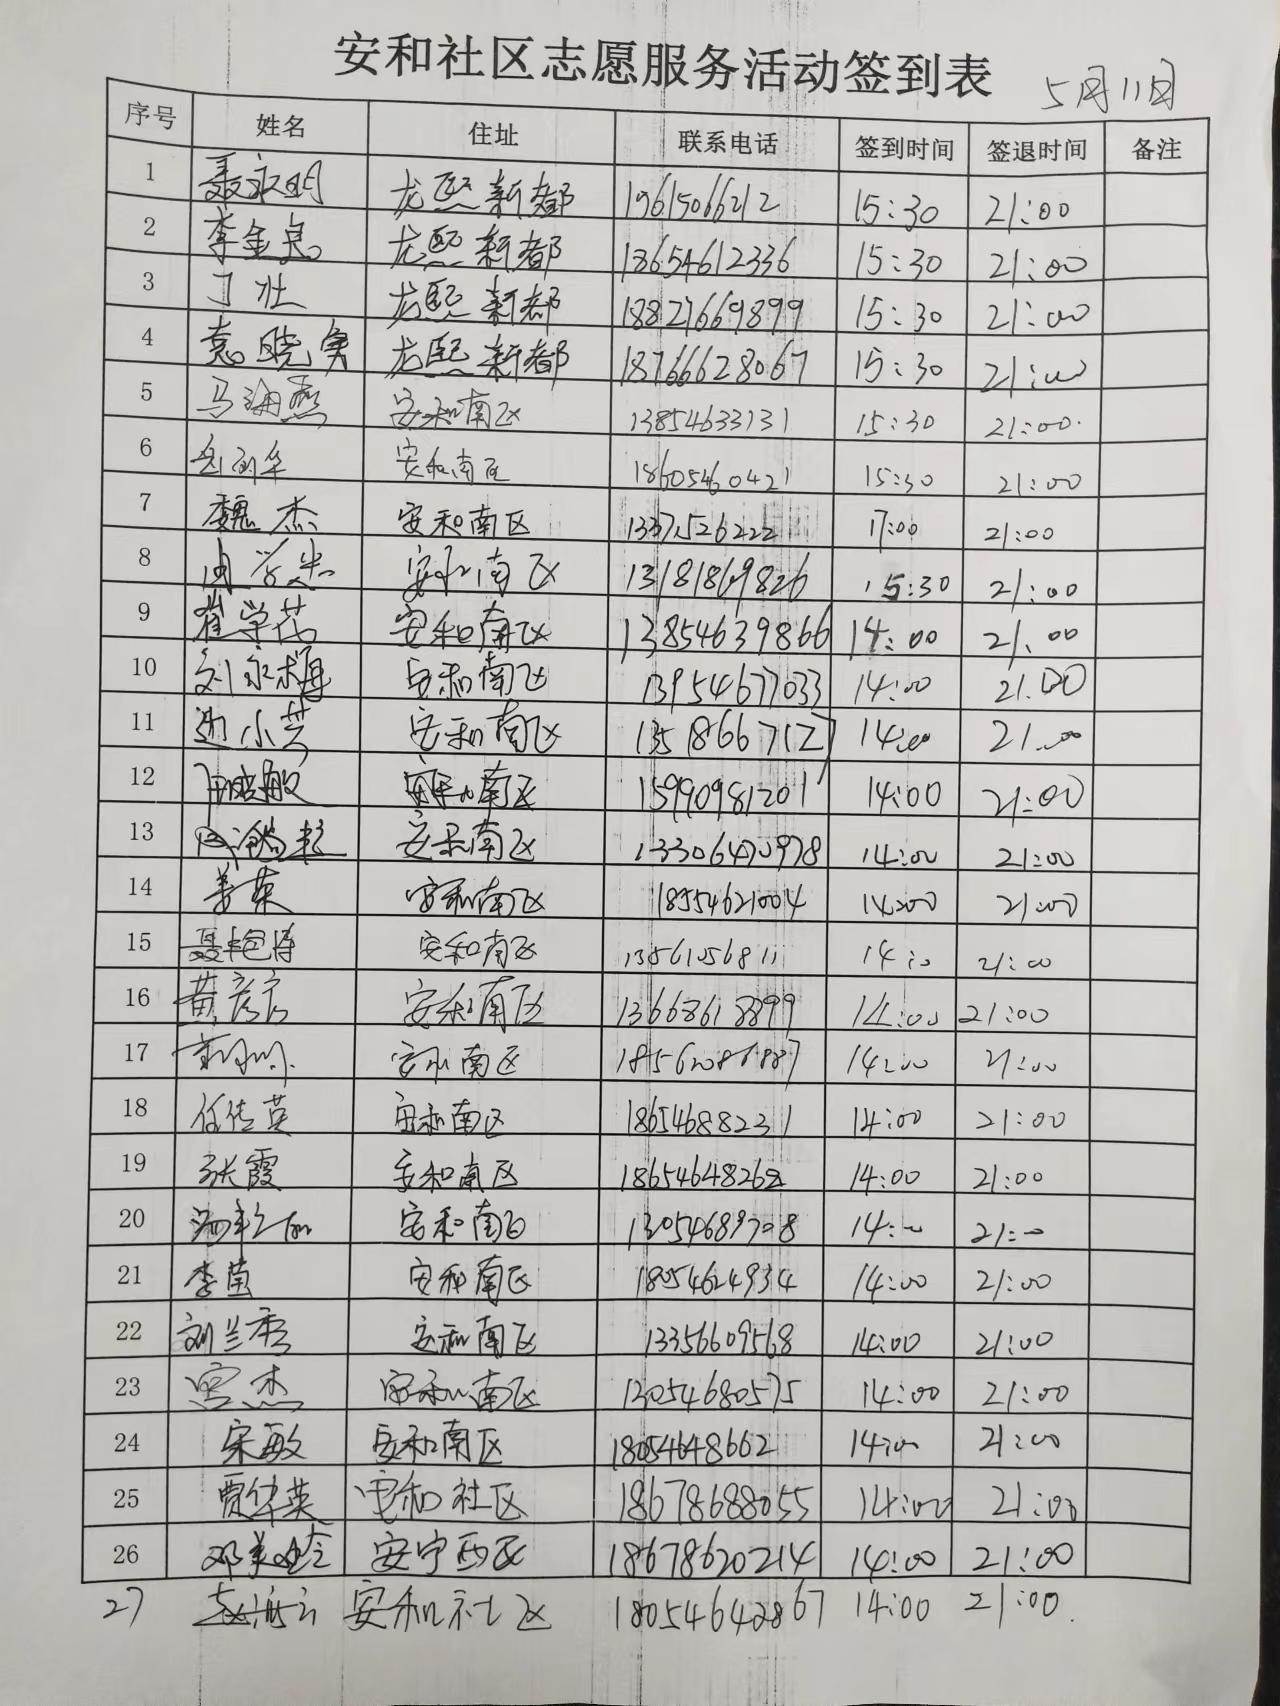 安和社区志愿服务活动签到表 5月11日
序号 姓名 住址 联系电话 签到时间 签退时间 备注
1 聂永明 龙熙新都 19615066212 15:30 21:00
2 李金良 龙熙新都 18654612336 15:30 21:00
3 丁壮 龙熙新都 18821669899 15:30 21:00
4 袁晓寅 龙熙新都 18766628067 15:30 21:00
5 马海燕 安和南区 13854633131 15:30 21:00
6 安和南区 18605460421 15:30 21:00
7 魏杰 安和南区 13371526222 17:00 21:00
8 安和南区 13181869826 15:30 21:00
9 崔学茂 安和南区 13854639866 14:00 21:00
10 刘永梅 安和南区 13954677033 14:00 21:00
11 边小芳 安和南区 14:00 21:00
12 安和南区 15990981201 14:00 21:00
13 安和南区 13306470978 14:00 21:00
14 姜英 安和南区 18954621004 14:00 21:00
15 聂艳涛 安和南区 13561056811 14:00 21:00
16 黄彦彦 安和南区 13668618899 14:00 21:00
17 安和南区 18562086887 14:00 21:00
18 任传英 安和南区 18654688231 14:00 21:00
19 张霞 安和南区 18654648262 14:00 21:00
20 安和南区 13054689708 14:00 21:00
21 李莹 安和南区 18054624934 14:00 21:00
22 刘兰香 安和南区 13356609568 14:00 21:00
23 宫杰 安和南区 13054680575 14:00 21:00
24 宋敏 安和南区 18054648662 14:00 21:00
25 贾华英 安和社区 18678688055 14:00 21:00
26 邓美玲 安宁西区 18678620214 14:00 21:00
27 赵洪云 安和社区 18054642867 14:00 21:00